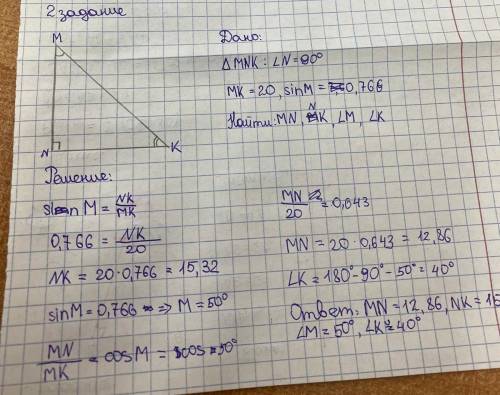 2 задание
M
N
K
Дано:
△MNK: ∠N=90°
MK=20, sinM=0,766
Найти: MN, NK, ∠M, ∠K
Решение:
sin M = NK/MK
0,766 = NK/20
NK = 20·0,766 = 15,32
sinM=0,766 => M=50°
MN/MK = cosM = cos 50°
MN/20 = 0,643
MN = 20·0,643 = 12,86
∠K = 180°-90°-50° = 40°
Ответ: MN=12,86, NK=15
∠M=50°, ∠K=40°